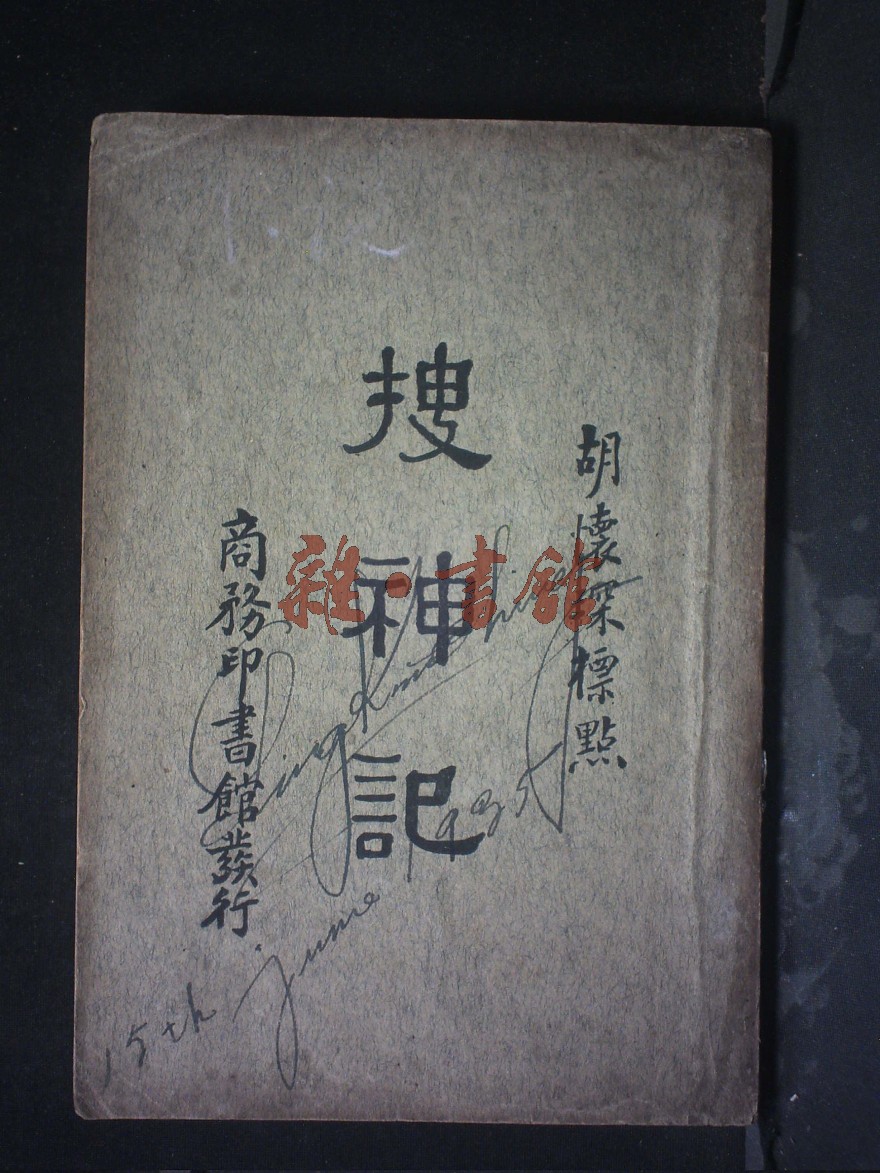 胡懷琛標點
搜神記
商務印書館發行
雜·書館
15th june 1935